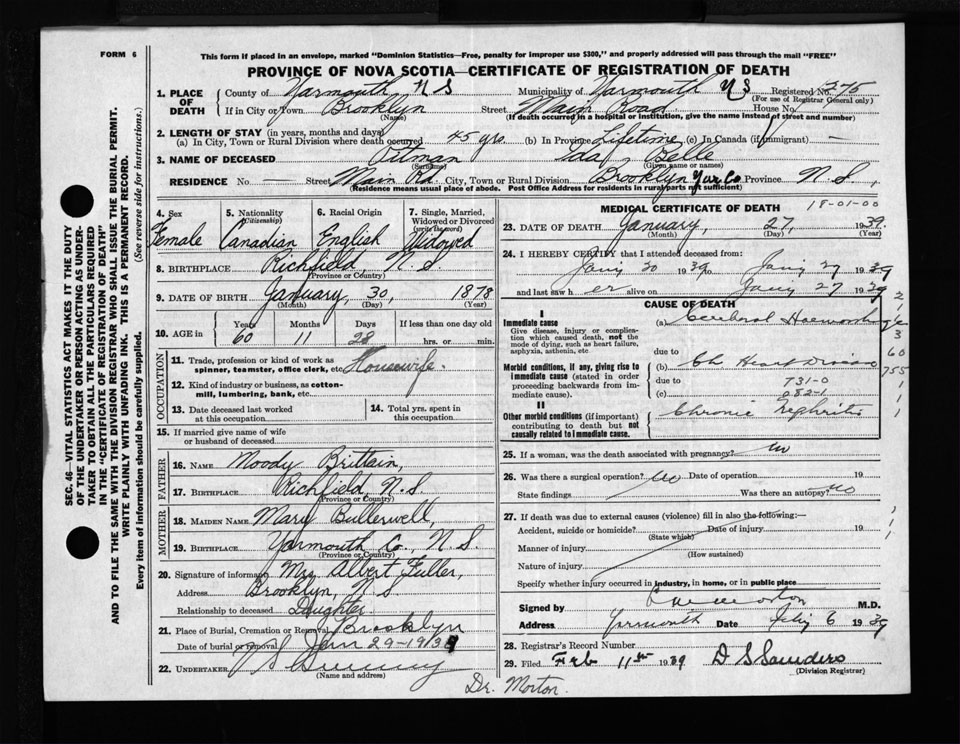 FORM 6
This form if placed in an envelope, marked "Dominion Statistics—Free, penalty for improper use $300," and properly addressed will pass through the mail "FREE"
PROVINCE OF NOVA SCOTIA—CERTIFICATE OF REGISTRATION OF DEATH
SEC. 46—VITAL STATISTICS ACT MAKES IT THE DUTY
OF THE UNDERTAKER OR PERSON ACTING AS UNDER-
TAKER TO OBTAIN ALL THE PARTICULARS REQUIRED
IN THE "CERTIFICATE OF REGISTRATION OF DEATH"
AND TO FILE THE SAME WITH THE DIVISION REGISTRAR WHO SHALL ISSUE THE BURIAL PERMIT.
WRITE PLAINLY WITH UNFADING INK. THIS IS A PERMANENT RECORD.
Every item of information should be carefully supplied. (See reverse side for instructions.)
1. PLACE OF DEATH
County of Yarmouth N S Municipality of Yarmouth N S Registered No. 375
(For use of Registrar General only)
If in City or Town Brooklyn Street Main Road House No.
(Name) (If death occurred in a hospital or institution, give the name instead of street and number)
2. LENGTH OF STAY (in years, months and days)
(a) In City, Town or Rural Division where death occurred 45 yrs. (b) In Province Lifetime (c) In Canada (if immigrant) —
3. NAME OF DECEASED Pitman Ida Belle
(Surname) (Given name or names)
RESIDENCE No — Street Main Rd. City, Town or Rural Division Brooklyn Yar Co Province N. S.,
(Residence means usual place of abode. Post Office Address for residents in rural parts not sufficient)
4. Sex
Female
5. Nationality
(Citizenship)
Canadian
6. Racial Origin
English
7. Single, Married,
Widowed or Divorced
(write the word)
Widowed
8. BIRTHPLACE Richfield, N. S.
(Province or Country)
9. DATE OF BIRTH January, 30, 1878
(Month) (Day) (Year)
10. AGE in
Years Months Days If less than one day old
60 11 28 hrs. or min.
OCCUPATION
11. Trade, profession or kind of work as
spinner, teamster, office clerk, etc. Housewife.
12. Kind of industry or business, as cotton-
mill, lumbering, bank, etc.
13. Date deceased last worked
at this occupation
14. Total yrs. spent in
this occupation
15. If married give name of wife
or husband of deceased
FATHER
16. NAME Moody Brittain,
17. BIRTHPLACE Richfield, N. S.
(Province or Country)
MOTHER
18. MAIDEN NAME Mary Bullerwell,
19. BIRTHPLACE Yarmouth Co., N. S.
(Province or Country)
20. Signature of informant Mrs. Albert Fuller,
Address Brooklyn, N. S.
Relationship to deceased Daughter
21. Place of Burial, Cremation or Removal Brooklyn
Date of burial or removal Jan 29-1939
22. UNDERTAKER
(Name and address)
MEDICAL CERTIFICATE OF DEATH 18-01-00
23. DATE OF DEATH January, 27, 1939.
(Month) (Day) (Year)
24. I HEREBY CERTIFY that I attended deceased from:
Jany 20 1939 to Jany 27 1939
and last saw h er alive on Jany 27 1939
CAUSE OF DEATH
I
Immediate cause
Give disease, injury or complica-
tion which caused death, not the
mode of dying, such as heart failure,
asphyxia, asthenia, etc
(a) Cerebral Haemorrhage
due to
Morbid conditions, if any, giving rise to
immediate cause (stated in order
proceeding backwards from im-
mediate cause).
(b) Chr Heart Disease
due to 731-0
(c) 082-1
II
Other morbid conditions (if important)
contributing to death but not
causally related to immediate cause.
Chronic Nephritis
2
1
3
60
755
1
1
25. If a woman, was the death associated with pregnancy? No
26. Was there a surgical operation? No Date of operation 19
State findings Was there an autopsy? No
27. If death was due to external causes (violence) fill in also the following:—
Accident, suicide or homicide? Date of injury 19
(State which)
Manner of injury
(How sustained)
Nature of injury
Specify whether injury occurred in industry, in home, or in public place
Signed by Morton M.D.
Address Yarmouth Date Feby 6 1939
28. Registrar's Record Number
29. Filed Feb 11th 1939 D S Saunders
(Division Registrar)
Dr. Morton.